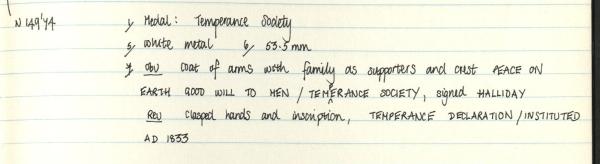 N 149'74 1, Medal: Temperance Society
5, White metal 6, 53.5 mm
7, Obv Coat of arms with family as supporters and crest PEACE ON
EARTH GOOD WILL TO MEN / TEMPERANCE SOCIETY, signed HALLIDAY
Rev Clasped hands and inscription, TEMPERANCE DECLARATION / INSTITUTED
AD 1833